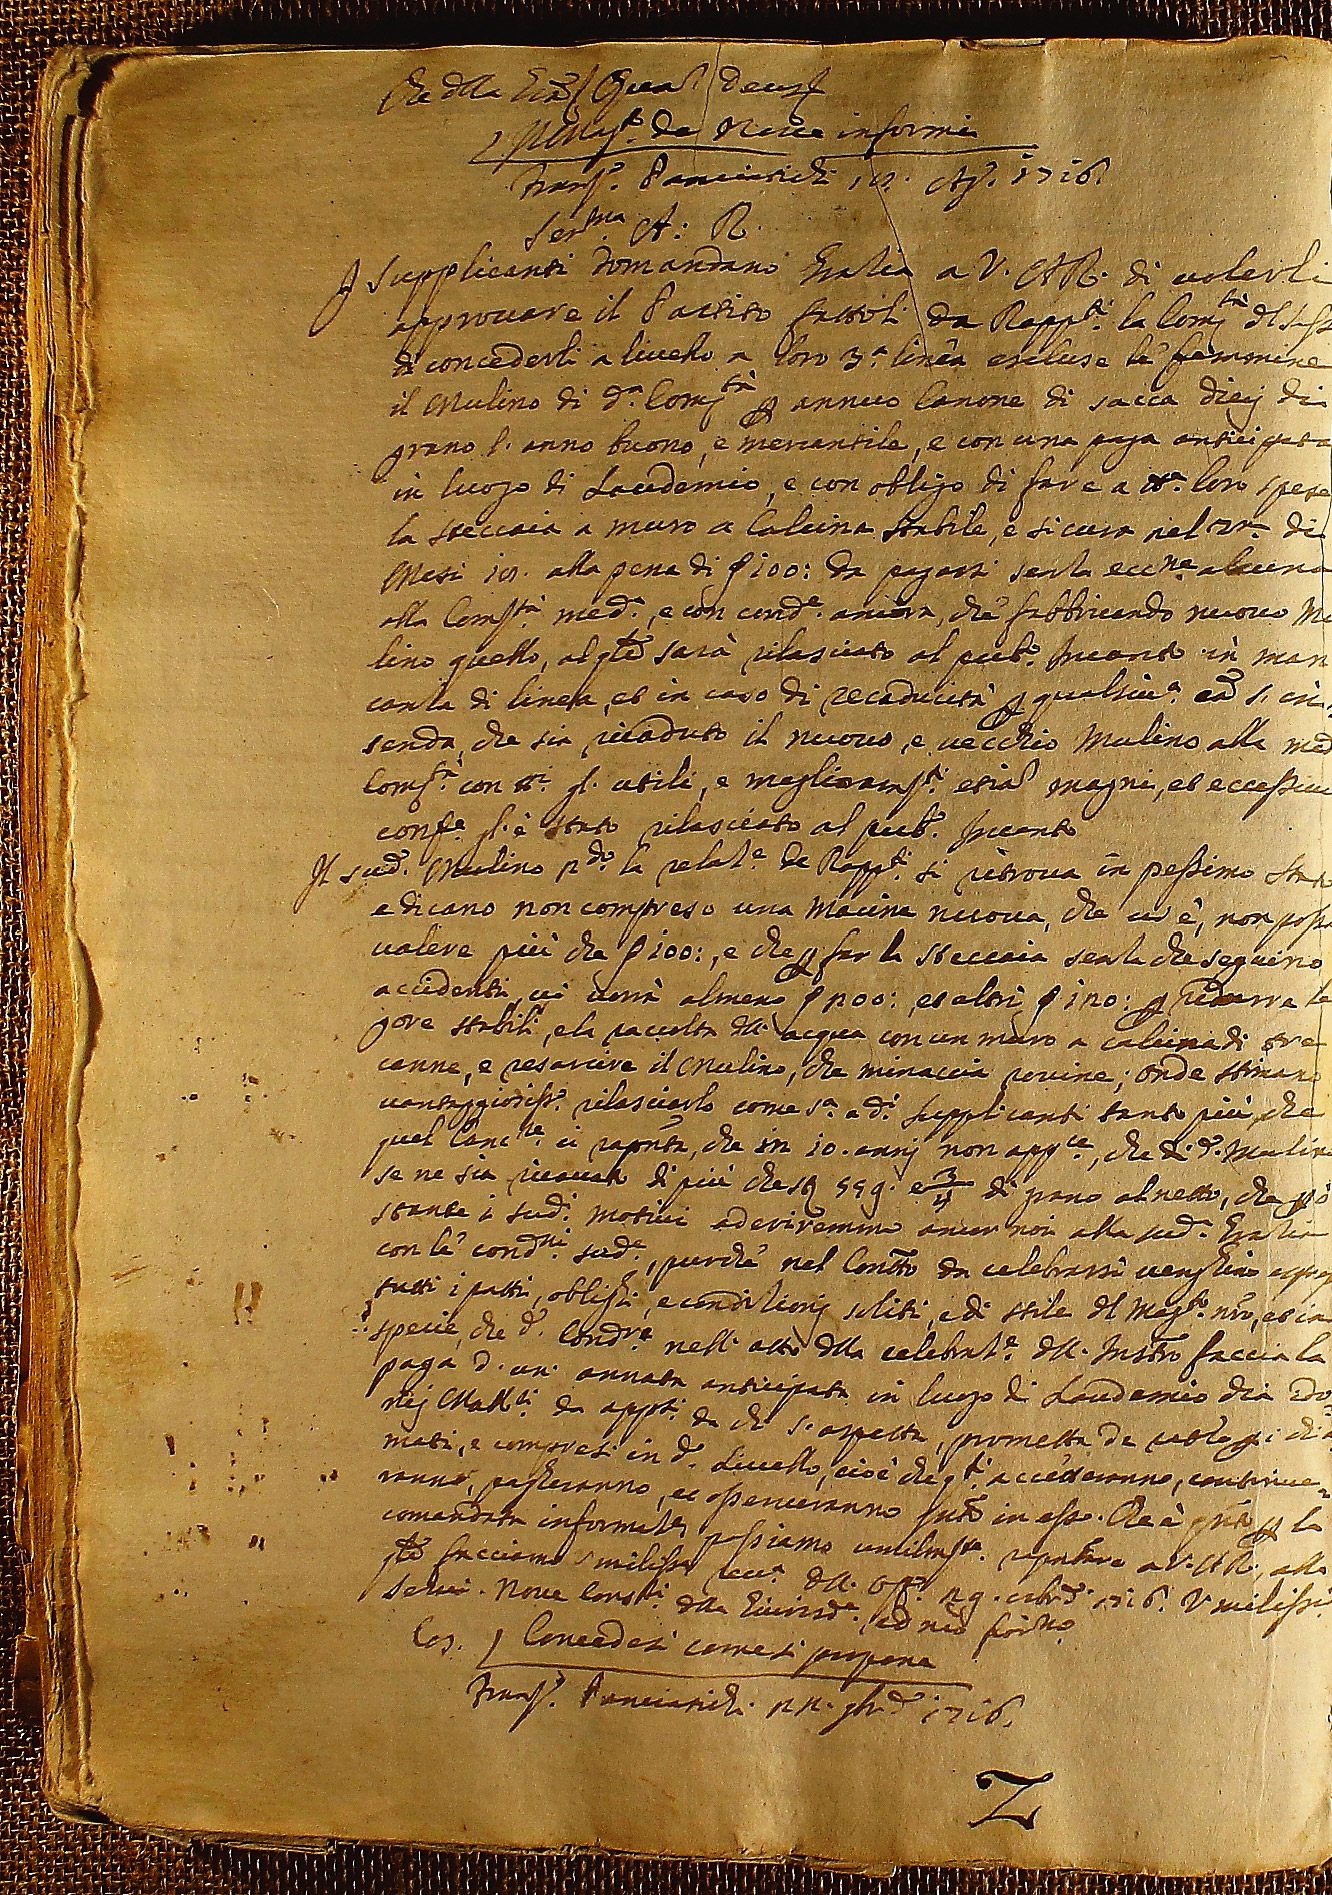 Che della Gra: Quas Deus
Il Mag.to de Nove informi
Franc.o Panciatichi 12. Ag.o 1716.
Ser.ma A: R.
I Supplicanti domandano Grazia a V. A.R. di volerli
approvare il Partito fattoli da Rapp.ti la Com.tà del
di concederli a livello a loro 3.a linea escluse le femmine
il Mulino di d.a Com.tà p annuo Canone di sacca dieci di
grano l'anno buono, e mercantile, e con una paga anticipata
in luogo di Laudemio, e con obligo di fare a tt.e loro spese
la steccaia a muro a calcina stabile, e sicura nel tr.e di
Mesi 18. alla pena di ƒ 100: da pagarsi senza ecc.ne alcuna
alla Com.tà med.a, e con cond.e ancora, che fabbricando nuovo Mu
lino quello, al q.to sarà rilasciato al pub.o Incanto in man
canza di linea, et in caso di recaducità p qualsivi.a ca.a s'in
tenda, che sia ricaduto il nuovo, e vecchio Mulino alla med
Com.tà con tt.i gl'utili, e miglioram.ti etia magni, et eccessivi
conf.e gl'è stato rilasciato al pub.o Incanto
Il sud.o Mulino p.do la relaz.e de Rapp.ti si ritrova in pessimo stato
e dicano non compreso una Macine nuova, che vi è, non possa
valere più che ƒ 100:, e che p far la steccaia senza che seguino
accidenti, vi vorrà almeno ƒ 200: et altri ƒ 120: p ridurre le
gore stabili, e la raccolta dell'acqua con un muro a calcina di tre
canne, e resarcire il Mulino, che minaccia rovine; onde stimano
vantaggiosiss.o rilasciarlo come s.a a d.i Supplicanti tanto più, che
quel Canc.re ci rapp.nta, che in 10. anni non app.ce, che di d.o Mulino
se ne sia ricavato di più che st 559. e 3/4 di grano al netto, che p ò
stante i sud.i motivi aderiremmo ancor noi alla sud.a Grazia
con le cond.ni sud.e, purchè nel Con.tto da celebrarsi venghino
tutti i patti, oblighi, e condizioni soliti, e di stile del Mag.to nro, et in
specie, che d.o Cond.re nell'atto della celebraz.e dell'Instro faccia la
paga d'un'annata anticipata in luogo di Laudemio dia ido
nei Mall.ri da app.si da chi s'aspetta, prometta de rato p i chia
mati, e compresi in d.o Livello, cioè che q.ti accetteranno, convinue
ranno, pagheranno, et osserveranno tutto in esso. Che è quanto p la
comandata informaz.e possiamo umilm.te rapp.ntare a V. A.R. alla
q.le facciamo umiliss.a rev.a Dall'Off.o 29. 8bre 1716. Umilissi
Servi. Nove Cons.ri della Giurisd.e, e Dom.o Fior.no
Cos. Concedesi come si propone
Franc.o Panciatichi 22. 9bre 1716.
Z